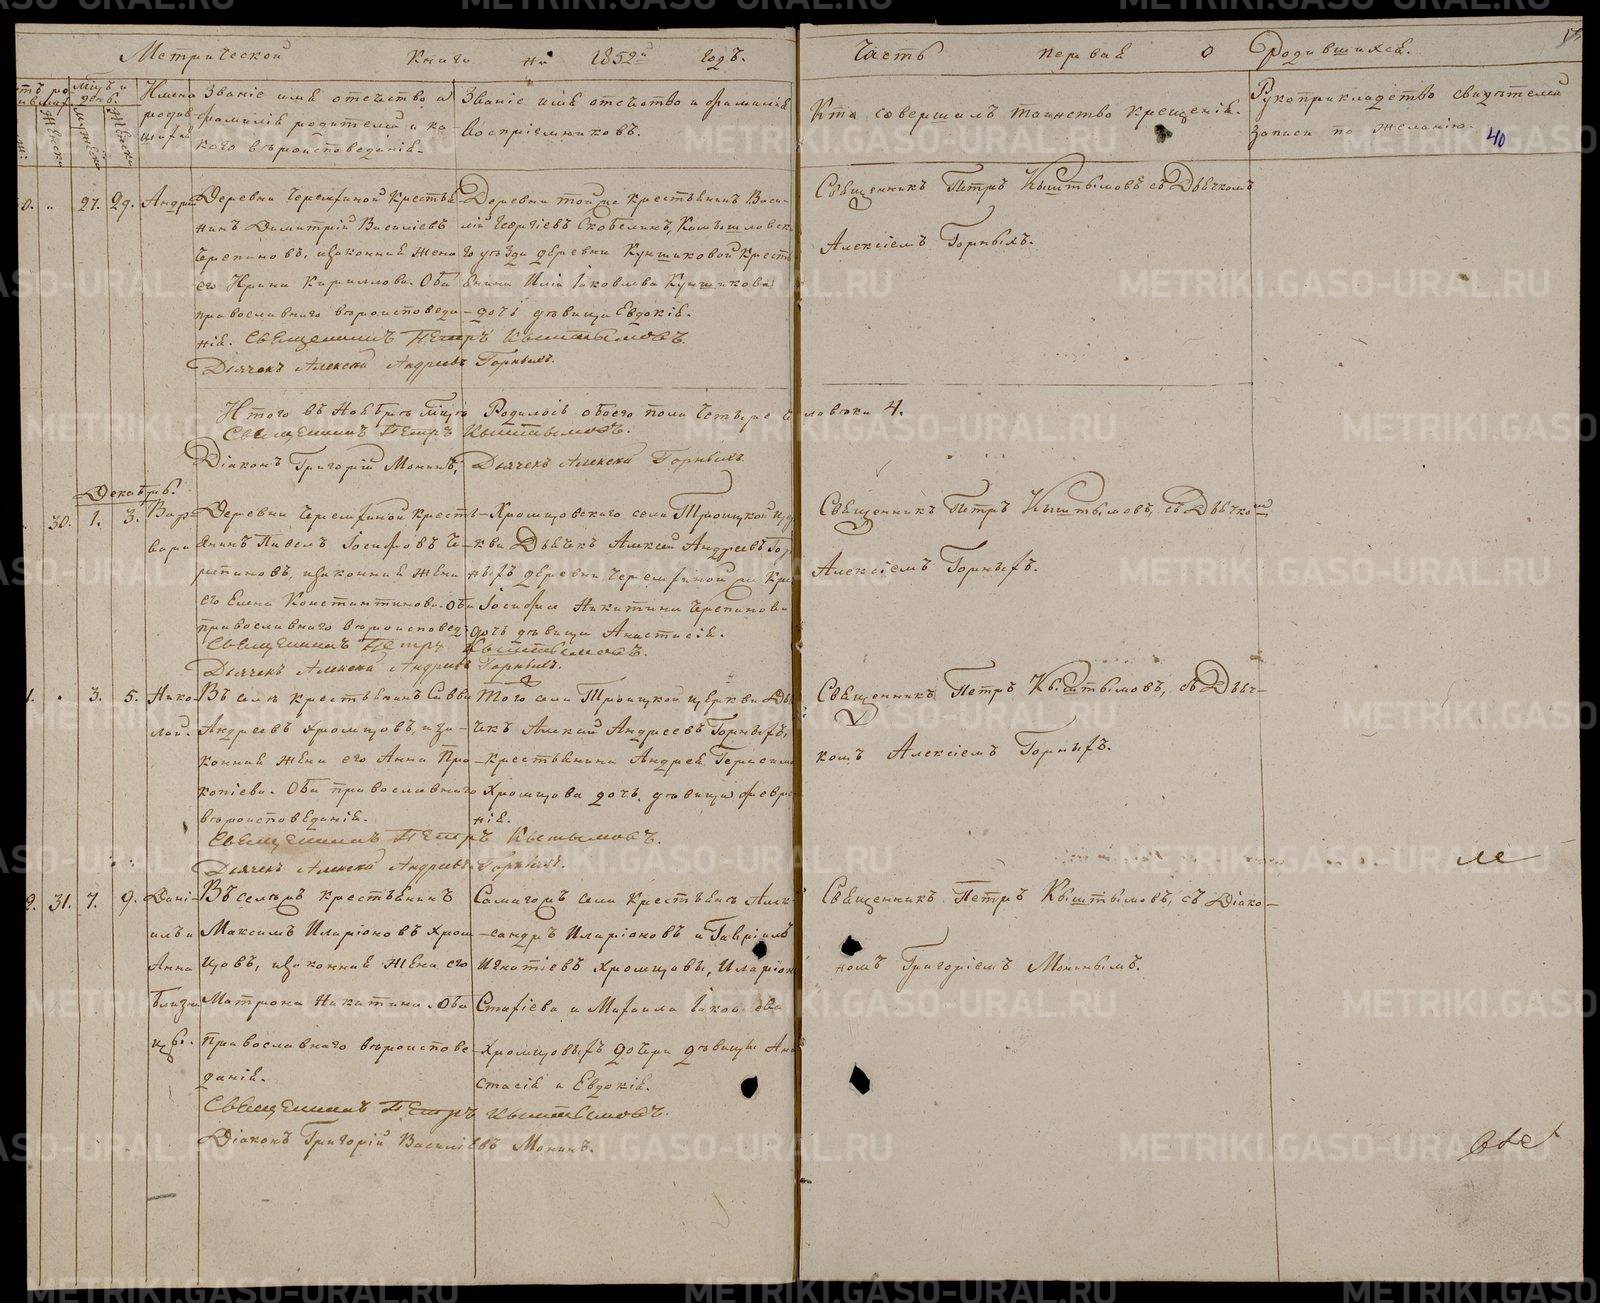 Метрической Книги на 1852й годъ.
Часть первая о Родившихся.
40
Мѣсяцъ и день.
Имена родившихся
Званіе имя отечество, и фамилія родителей и какого вѣроисповеданія.
Званіе имя отечество и фамилія Воспріемниковъ.
Кто совершалъ таинство крещенія.
Рукоприкладство свидѣтелей записи по желанію.
27. 29. Андрей
Деревни Черемхиной Крестья-
нинъ Димитрій Василіевъ
Черепановъ, изаконная жена
его Ирина Кириллова. Оба
православнаго вѣроисповеда-
нія. Священникъ Петръ Кыштымовъ
Дьячекъ Алексей Андреевъ Горныхъ.
Деревни тойже крестьянинъ Васи-
лій Георгіевъ Скобелинъ, Камышловск
уѣзда деревни Куншиковой крест
янина Илія Іаковлева Куншикова
дочь дѣвица Евдокія.
Священникъ Петръ Кыштымовъ съ Дьячкомъ
Алексіемъ Горныхъ.
Итого въ Ноябрѣ мѣсяцѣ Родилось обоего пола четыре человѣка 4.
Священникъ Петръ Кыштымовъ.
Діаконъ Григорій Монинъ, Дьячекъ Алексей Горныхъ
Декабрь.
30. 1. 3. Вар-
вара
Деревни Черемхиной кресть-
янинъ Павелъ Іосифовъ Че-
репановъ, изаконная жена
его Елена Константинова. Оба
православнаго вѣроисповед-
Священникъ Петръ Кыштымовъ.
Дьячекъ Алексей Андреевъ Горныхъ.
Хромцовскаго села Троицкой цер
кви Дьячекъ Алексий Андреевъ Гор
ныхъ деревни Черемхиной же кре
Іосифа Никитина Черепанова
дочь дѣвица Анастасія.
Священникъ Петръ Кыштымовъ, съ Дьячкомъ
Алексіемъ Горныхъ.
1. 3. 5. Нико-
лай.
Въ селѣ крестьянинъ Савва
Андреевъ Хромцовъ, иза-
конная жена его Анна Про-
копіева. Оба православнаго
вѣроисповѣданія.
Священникъ Петръ Кыштымовъ.
Дьячекъ Алексей Андреевъ Горныхъ.
Того села Троицкой церкви Дья
чекъ Алексий Андреевъ Горныхъ,
крестьянина Андрея Герасима
Хромцова дочь, дѣвица Февро
нія.
Священникъ Петръ Кыштымовъ, съ Дьяч-
комъ Алексіемъ Горныхъ.
2. 31. 7. 9. Дані-
илъ и
Анна
близне
цы.
Въ селѣ крестьянинъ
Максимъ Иларіоновъ Хром-
цовъ, изаконная жена его
Матрона Никитина. Оба
православнаго вѣроиспове-
данія.
Священникъ Петръ Кыштымовъ.
Діаконъ Григорій Василіевъ Монинъ.
села крестьяне Алек-
сандръ Иларіоновъ и Гавріилъ
Игнатіевъ Хромцовы, Иларіона
и Михаила Іаковлева
Хромцовыхъ дочери дѣвицы Ана
стасія и Евдокія.
Священникъ Петръ Кыштымовъ, съ Діако-
номъ Григоріемъ Монинымъ.
METRIKI.GASO-URAL.RU